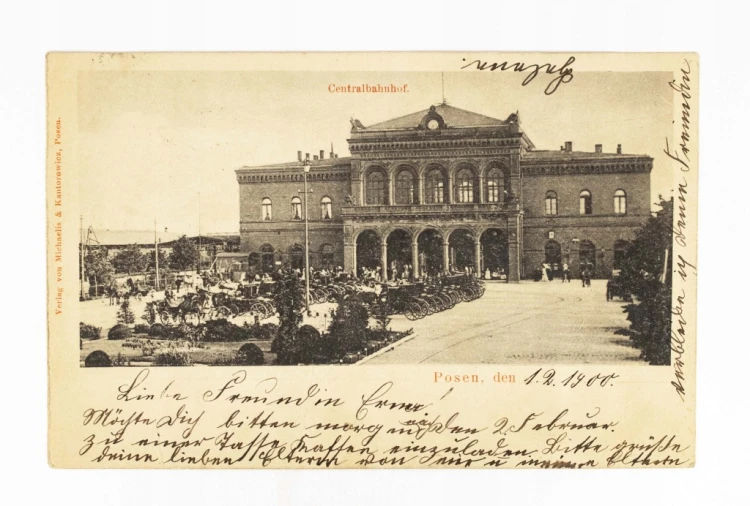 Centralbahnhof.
Verlag von Michaelis & Kantorowicz, Posen.
Posen, den 1.2.1900.
Liebe Freundin Erna!
Möchte Dich bitten morgen den 2 Februar
zu einer Tasse Kaffee einzuladen. Bitte grüße
deine lieben Eltern von mir u meinen Eltern
verbleibe ich deine Freundin